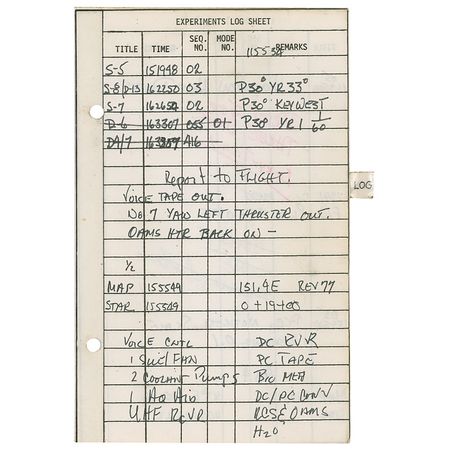 EXPERIMENTS LOG SHEET
TITLE TIME SEQ. NO. MODE NO. 115554 REMARKS
S-5 151948 02
S-8/D-13 162250 03 P30° YR33°
S-7 162650 02 P30° KEY WEST
D-6 163307 055 01 P30° YR 1 1/60
D4/7 163307 A16
Report to FLIGHT.
LOG
VOICE TAPE OUT.
No 7 YAW LEFT THRUSTER OUT.
OAMS HTR BACK ON -
1/2
MAP 155549 151.4E REV 77
STAR 155549 0+19+00
VOICE CNTL DC
1 Suit/FAN PC TAPE
2 Coolant Pumps Bio MED
1 DC/DC CONV
UHF RCVR RCS & OAMS
H2O